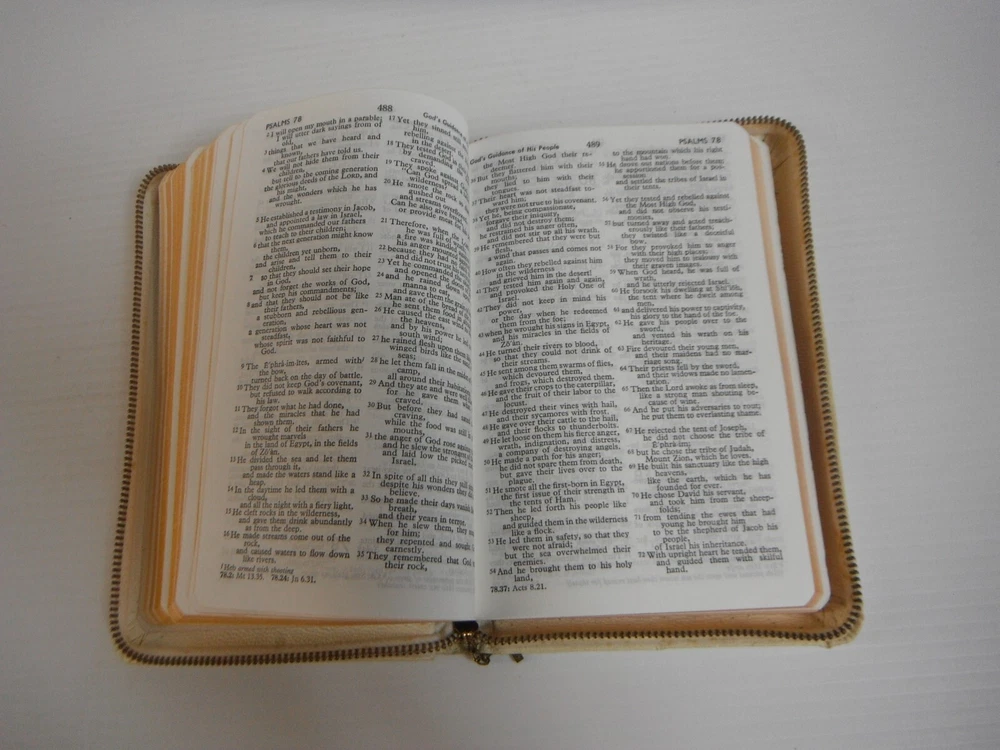 PSALMS 78
488
God's Guidance
2 I will open my mouth in a parable;
I will utter dark sayings from of
old,
3 things that we have heard and
known,
that our fathers have told us.
4 We will not hide them from their
children,
but tell to the coming generation
the glorious deeds of the LORD, and
his might,
and the wonders which he has
wrought.
5 He established a testimony in Jacob,
and appointed a law in Israel,
which he commanded our fathers
to teach to their children;
6 that the next generation might know
them,
the children yet unborn,
and arise and tell them to their
children,
7 so that they should set their hope
in God,
and not forget the works of God,
but keep his commandments;
8 and that they should not be like
their fathers,
a stubborn and rebellious gen-
eration,
a generation whose heart was not
steadfast,
whose spirit was not faithful to
God.
9 The E'phrǝim-ites, armed with f
the bow,
turned back on the day of battle.
10 They did not keep God's covenant,
but refused to walk according to
his law.
11 They forgot what he had done,
and the miracles that he had
shown them.
12 In the sight of their fathers he
wrought marvels
in the land of Egypt, in the fields
of Zō'an.
13 He divided the sea and let them
pass through it,
and made the waters stand like a
heap.
14 In the daytime he led them with a
cloud,
and all the night with a fiery light.
15 He cleft rocks in the wilderness,
and gave them drink abundantly
as from the deep.
16 He made streams come out of the
rock,
and caused waters to flow down
like rivers.
f Heb armed with shooting
78.2: Mt 13.35. 78.24: Jn 6.31.
17 Yet they sinned still
him,
rebelling against
in the desert.
18 They tested
by demanding
craved.
19 They spoke against
"Can God spread
the wilderness?
20 He smote the rock
gushed out
and streams overflowed
Can he also give bread
or provide meat
21 Therefore, when the
he was full of wrath
a fire was kindled
his anger mounted
22 because they had no
and did not trust his
23 Yet he commanded the
and opened the doors
24 and he rained down
manna to eat,
and gave them the grain
25 Man ate of the bread
he sent them food in
26 He caused the east wind
the heavens,
and by his power he led
south wind;
27 he rained flesh upon them
winged birds like the
seas;
28 he let them fall in the midst
camp,
all around their habitations
29 And they ate and were well
for he gave them what
craved.
30 But before they had sated
craving,
while the food was still
mouths,
31 the anger of God rose against
and he slew the strongest
and laid low the picked
Israel.
32 In spite of all this they still
despite his wonders they did
believe.
33 So he made their days vanish
breath,
and their years in terror.
34 When he slew them, they
for him;
they repented and sought
earnestly.
35 They remembered that God
their rock,
God's Guidance of His People
489
PSALMS 78
the Most High God their re-
deemer.
36 But they flattered him with their
mouths;
they lied to him with their
tongues.
37 Their heart was not steadfast to-
ward him;
they were not true to his covenant.
38 Yet he, being compassionate,
forgave their iniquity,
and did not destroy them;
he restrained his anger often,
and did not stir up all his wrath.
39 He remembered that they were but
flesh,
a wind that passes and comes not
again.
40 How often they rebelled against him
in the wilderness
and grieved him in the desert!
41 They tested him again and again,
and provoked the Holy One of
Israel.
42 They did not keep in mind his
power,
or the day when he redeemed
them from the foe;
43 when he wrought his signs in Egypt,
and his miracles in the fields of
Zō'an.
44 He turned their rivers to blood,
so that they could not drink of
their streams.
45 He sent among them swarms of flies,
which devoured them,
and frogs, which destroyed them.
46 He gave their crops to the caterpillar,
and the fruit of their labor to the
locust.
47 He destroyed their vines with hail,
and their sycamores with frost.
48 He gave over their cattle to the hail,
and their flocks to thunderbolts.
49 He let loose on them his fierce anger,
wrath, indignation, and distress,
a company of destroying angels.
50 He made a path for his anger;
he did not spare them from death,
but gave their lives over to the
plague.
51 He smote all the first-born in Egypt,
the first issue of their strength in
the tents of Ham.
52 Then he led forth his people like
sheep,
and guided them in the wilderness
like a flock.
53 He led them in safety, so that they
were not afraid;
but the sea overwhelmed their
enemies.
54 And he brought them to his holy
land,
78.37: Acts 8.21.
to the mountain which his right
hand had won.
55 He drove out nations before them;
he apportioned them for a pos-
session
and settled the tribes of Israel in
their tents.
56 Yet they tested and rebelled against
the Most High God,
and did not observe his testi-
monies,
57 but turned away and acted treach-
erously like their fathers;
they twisted like a deceitful
bow.
58 For they provoked him to anger
with their high places;
they moved him to jealousy with
their graven images.
59 When God heard, he was full of
wrath,
and he utterly rejected Israel.
60 He forsook his dwelling at Shī'lōh,
the tent where he dwelt among
men,
61 and delivered his power to captivity,
his glory to the hand of the foe.
62 He gave his people over to the
sword,
and vented his wrath on his
heritage.
63 Fire devoured their young men,
and their maidens had no mar-
riage song.
64 Their priests fell by the sword,
and their widows made no lamen-
tation.
65 Then the Lord awoke as from sleep,
like a strong man shouting be-
cause of wine.
66 And he put his adversaries to rout;
he put them to everlasting shame.
67 He rejected the tent of Joseph,
he did not choose the tribe of
E'phrǝim;
68 but he chose the tribe of Judah,
Mount Zion, which he loves.
69 He built his sanctuary like the high
heavens,
like the earth, which he has
founded for ever.
70 He chose David his servant,
and took him from the sheep-
folds;
71 from tending the ewes that had
young he brought him
to be the shepherd of Jacob his
people,
of Israel his inheritance.
72 With upright heart he tended them,
and guided them with skilful
hand.